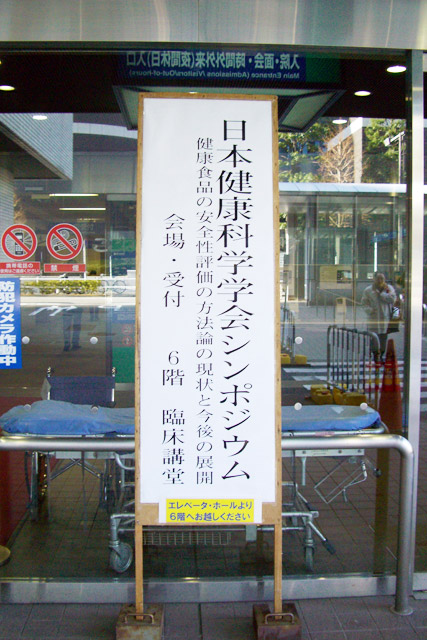 入院・面会・時間外外来(夜間休日)入口
Main Entrance (Admissions /Visitors/Out-of-hours)
日本健康科学学会シンポジウム
健康食品の安全性評価の方法論の現状と今後の展開
会場・受付 6階 臨床講堂
エレベータ・ホールより
6階へお越しください
禁煙
防犯カメラ作動中